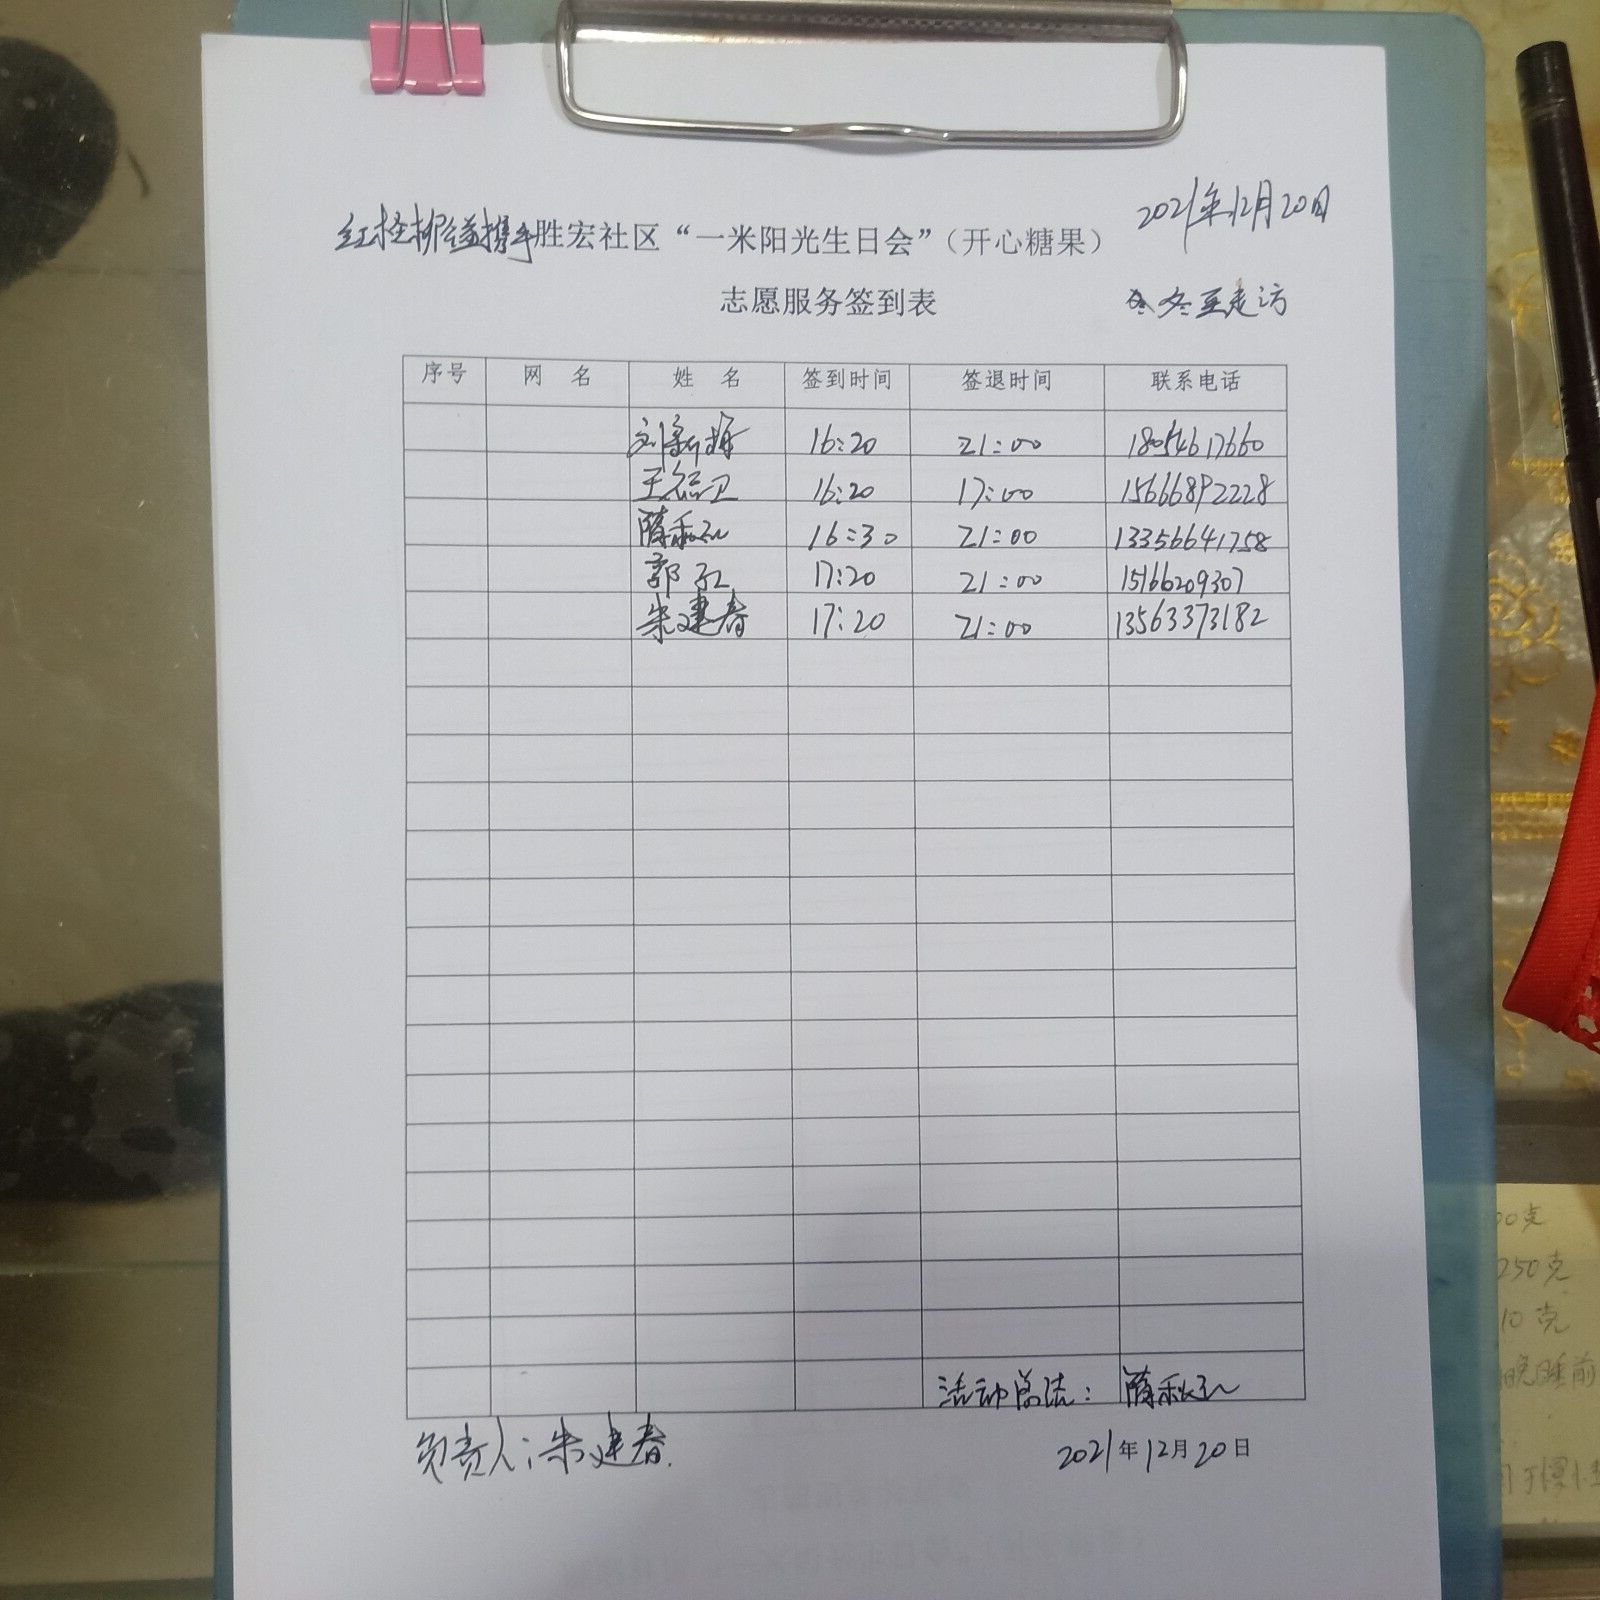 2021年12月20日
红柽柳公益携手胜宏社区“一米阳光生日会”（开心糖果）
志愿服务签到表 冬至走访
序号 网 名 姓 名 签到时间 签退时间 联系电话
刘新梅 16:20 21:00 18054617660
王 卫 16:20 17:00 15666892228
隋秋红 16:30 21:00 13356641758
郭红 17:20 21:00 15166209307
朱建春 17:20 21:00 13563373182
活动总结： 隋秋红
负责人：朱建春
2021年12月20日
00克
250克
10克
晚睡前
用于慢性